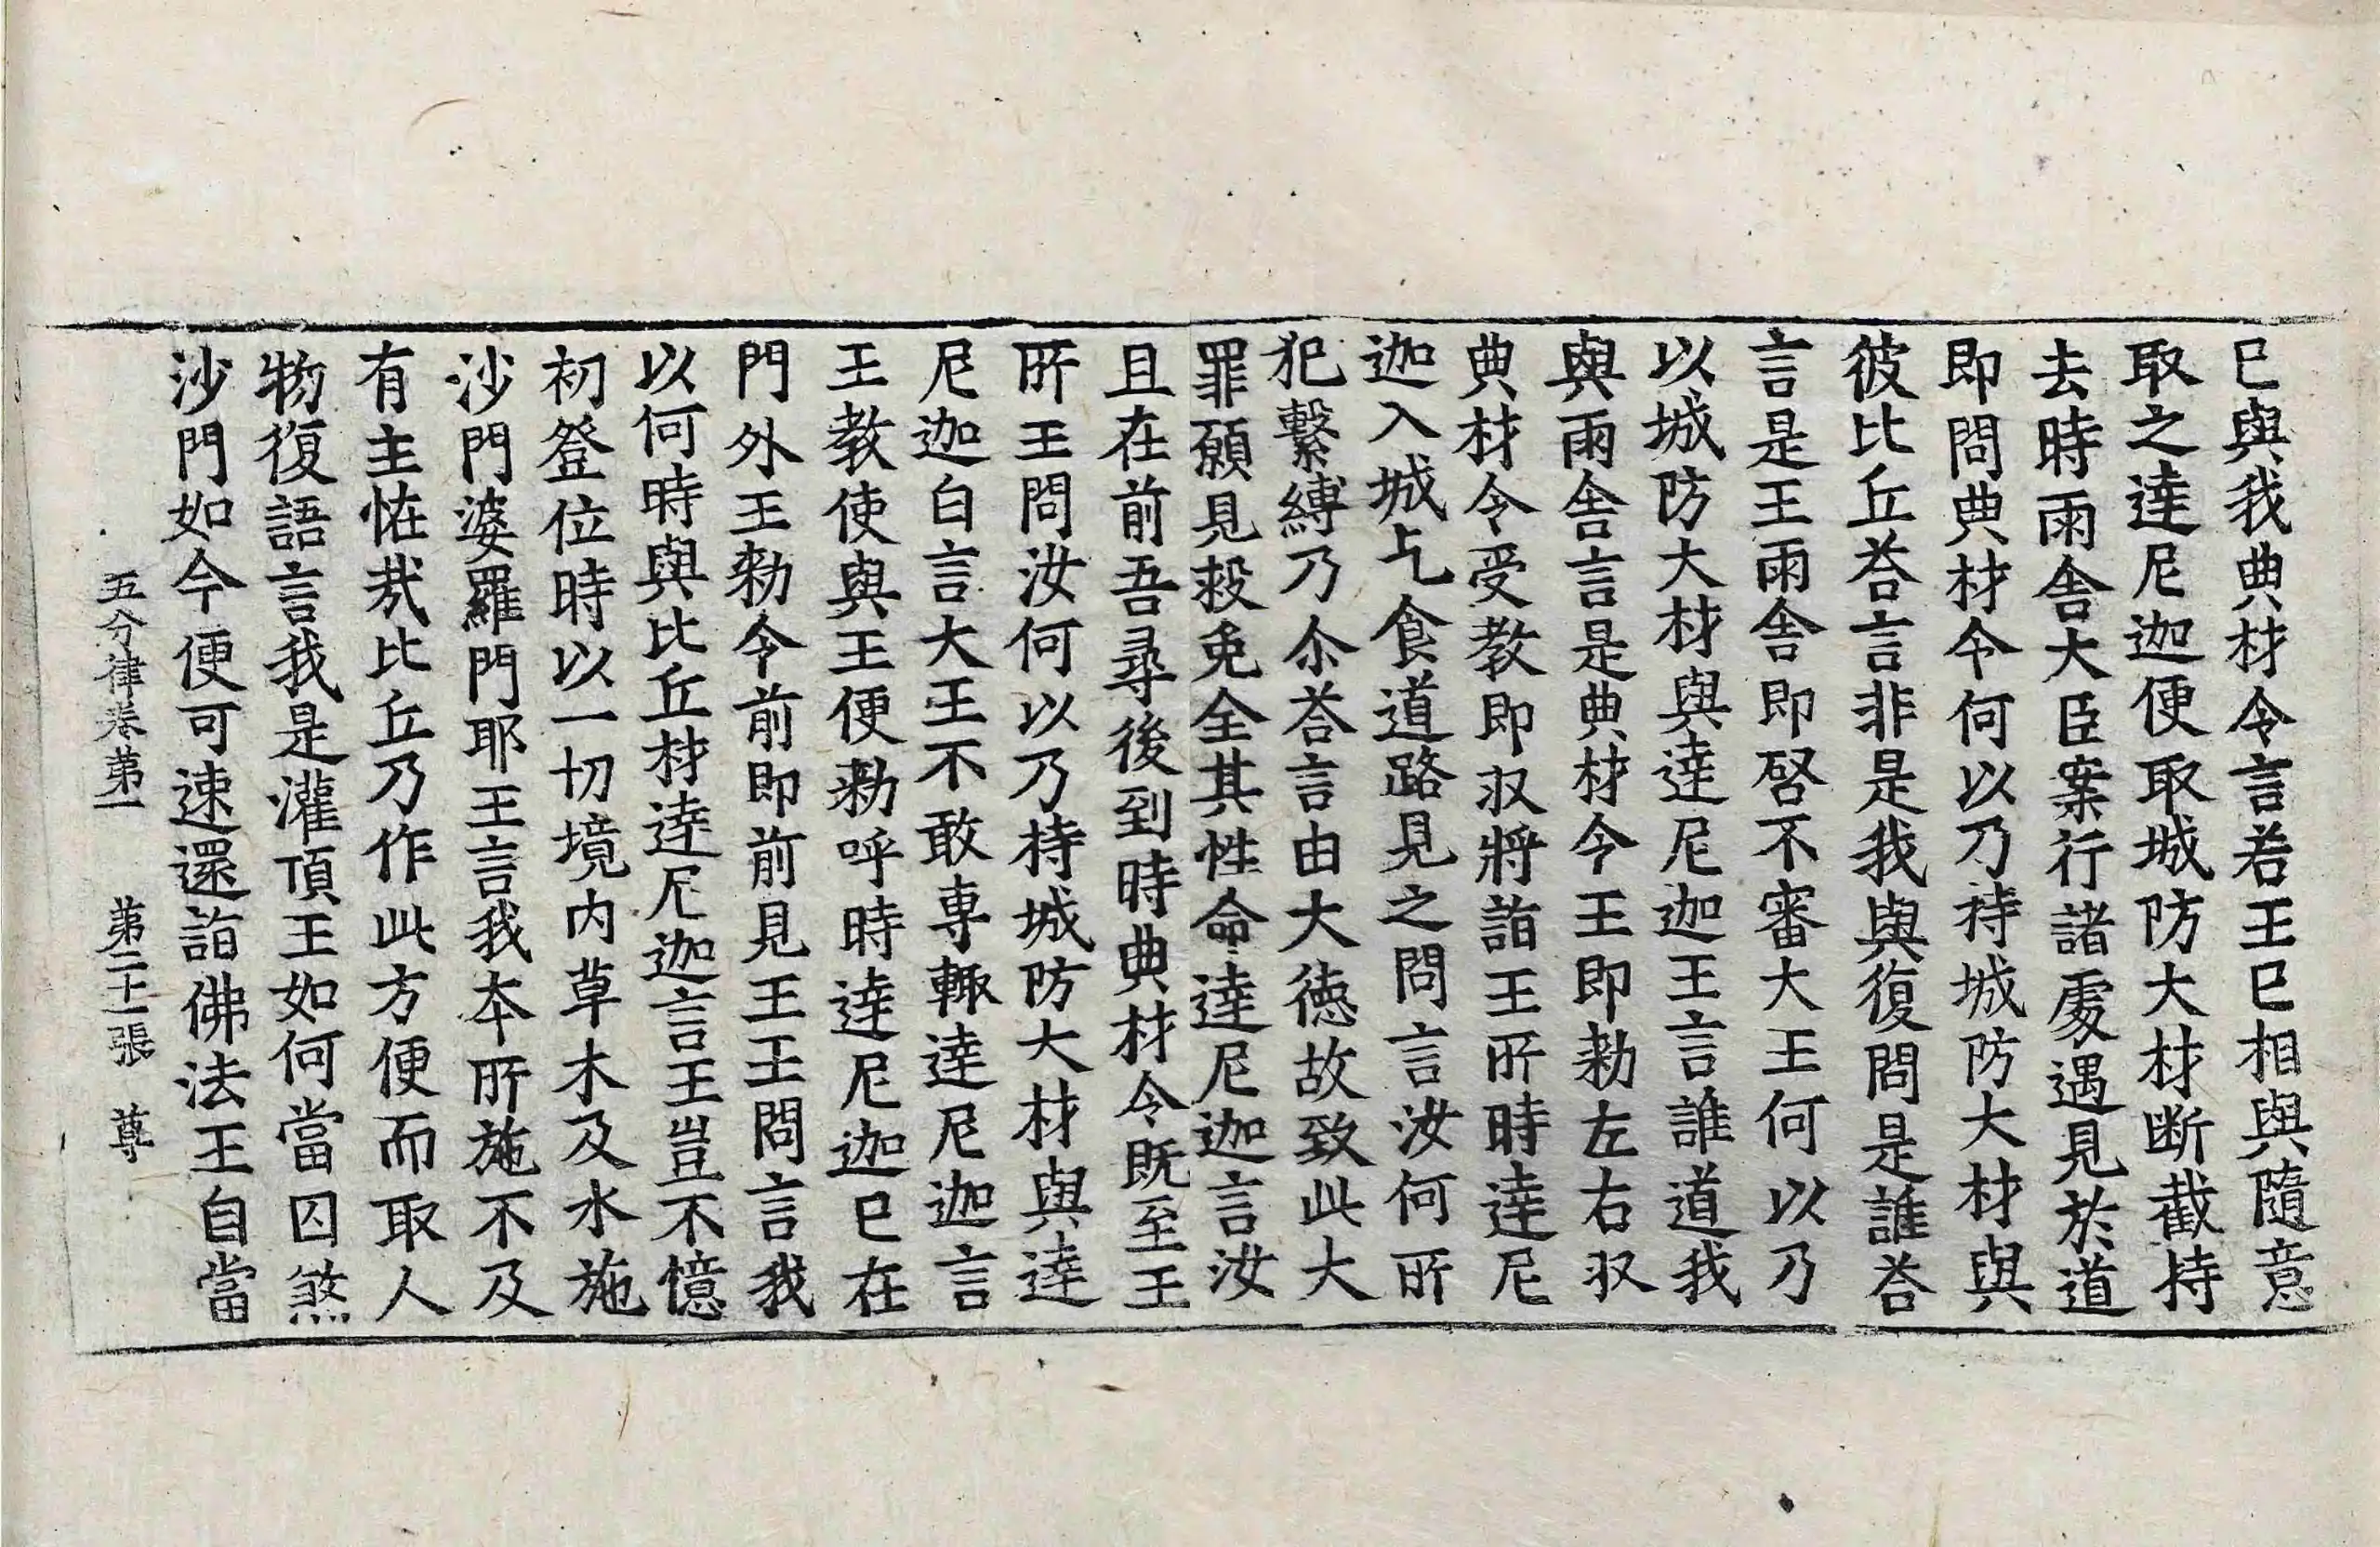 已與我典材令言若王已相與隨意
取之達尼迦便取城防大材断截持
去時雨舍大臣案行諸處遇見於道
即問典材令何以乃持城防大材與
彼比丘荅言非是我與復問是誰荅
言是王雨舍即啓不審大王何以乃
以城防大材與達尼迦王言誰道我
與雨舍言是典材令王即勑左右収
典材令受教即収將詣王所時達尼
迦入城乞食道路見之問言汝何所
犯繫縛乃尒荅言由大徳故致此大
罪願見救免全其性命達尼迦言汝
且在前吾尋後到時典材令既至王
所王問汝何以乃持城防大材與達
尼迦白言大王不敢專輙達尼迦言
王教使與王便勑呼時達尼迦已在
門外王勑令前即前見王王問言我
以何時與比丘材達尼迦言王豈不憶
初登位時以一切境内草木及水施
沙門婆羅門耶王言我本所施不及
有主恠㢤比丘乃作此方便而取人
物復語言我是灌頂王如何當囚煞
沙門如今便可速還詣佛法王自當
五分律卷第一　第二十一張　尊